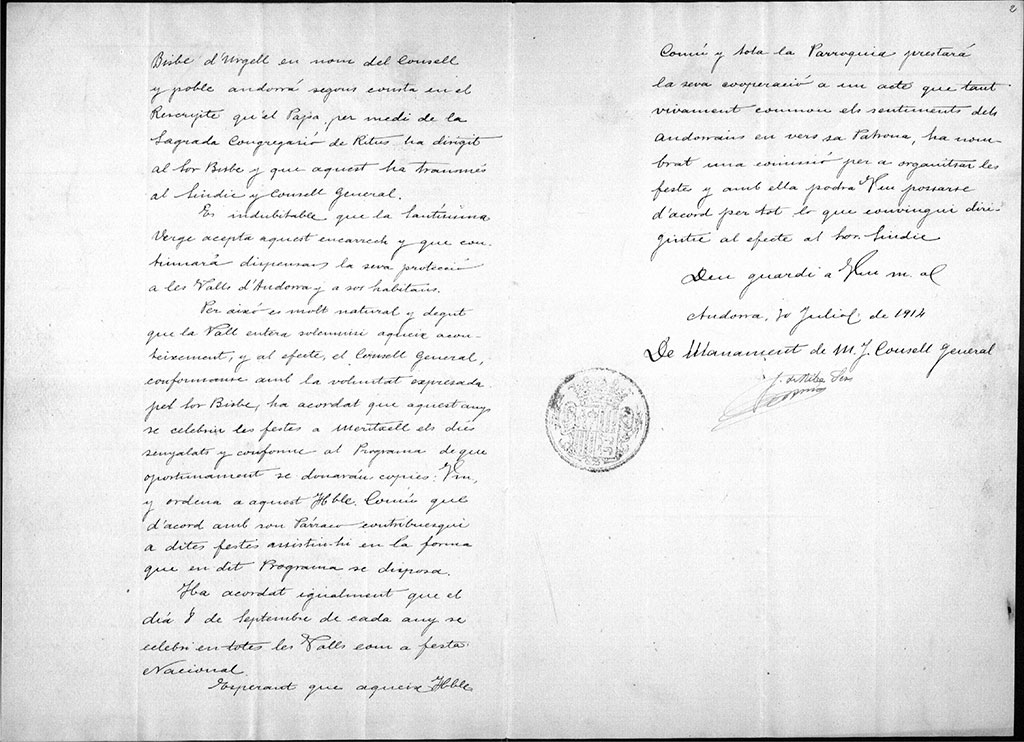 2
Bisbe d'Urgell en nom del Consell
y poble andorrá segons consta en el
Rescripte qu'el Papa, per medi de la
Sagrada Congregació de Ritus, ha dirigit
al Sor Bisbe y que aquest ha transmés
al Sindic y Consell General.
Es indubitable que la Santíssima
Verge acepta aquest encarrech y que con-
tinuará dispensant la seva protecció
a les Valls d'Andorra y a sos habitans.
Per aixó es molt natural y degut
que la Vall entera solemnisi aqueix acon-
teixement, y al efecte, el Consell General,
conformanse amb la voluntat expresada
pel Sor Bisbe, ha acordat que aquest any
se celebrin les festes a Meritxell els diés
senyalats y conforme al Programa de que
oportunament se donarán copies.
y ordena a aquest Hble. Comú que
d'acord amb son Párraco contribuesqui
a dites festes assistint-hi en la forma
que en dit Programa se disposa.
Ha acordat igualment que el
día 8 de Septembre de cada any se
celebri en totes les Valls com a festa
Nacional.
Esperant que aqueix Hble
Comú y tota la Parroquia prestará
la seva cooperació a un acte que tant
vivament commou els sentiments dels
andorráns en vers sa Patrona, ha nom-
brat una comissió per a organitsar les
festes y amb ella podrá Vm possarse
d'acord per tot lo que convingui diri-
gintse al efecte al Sor. Sindic
Deu guardi a Vm m. a
Andorra, 30 Juliol de 1914
De Manament de M. J. Consell General